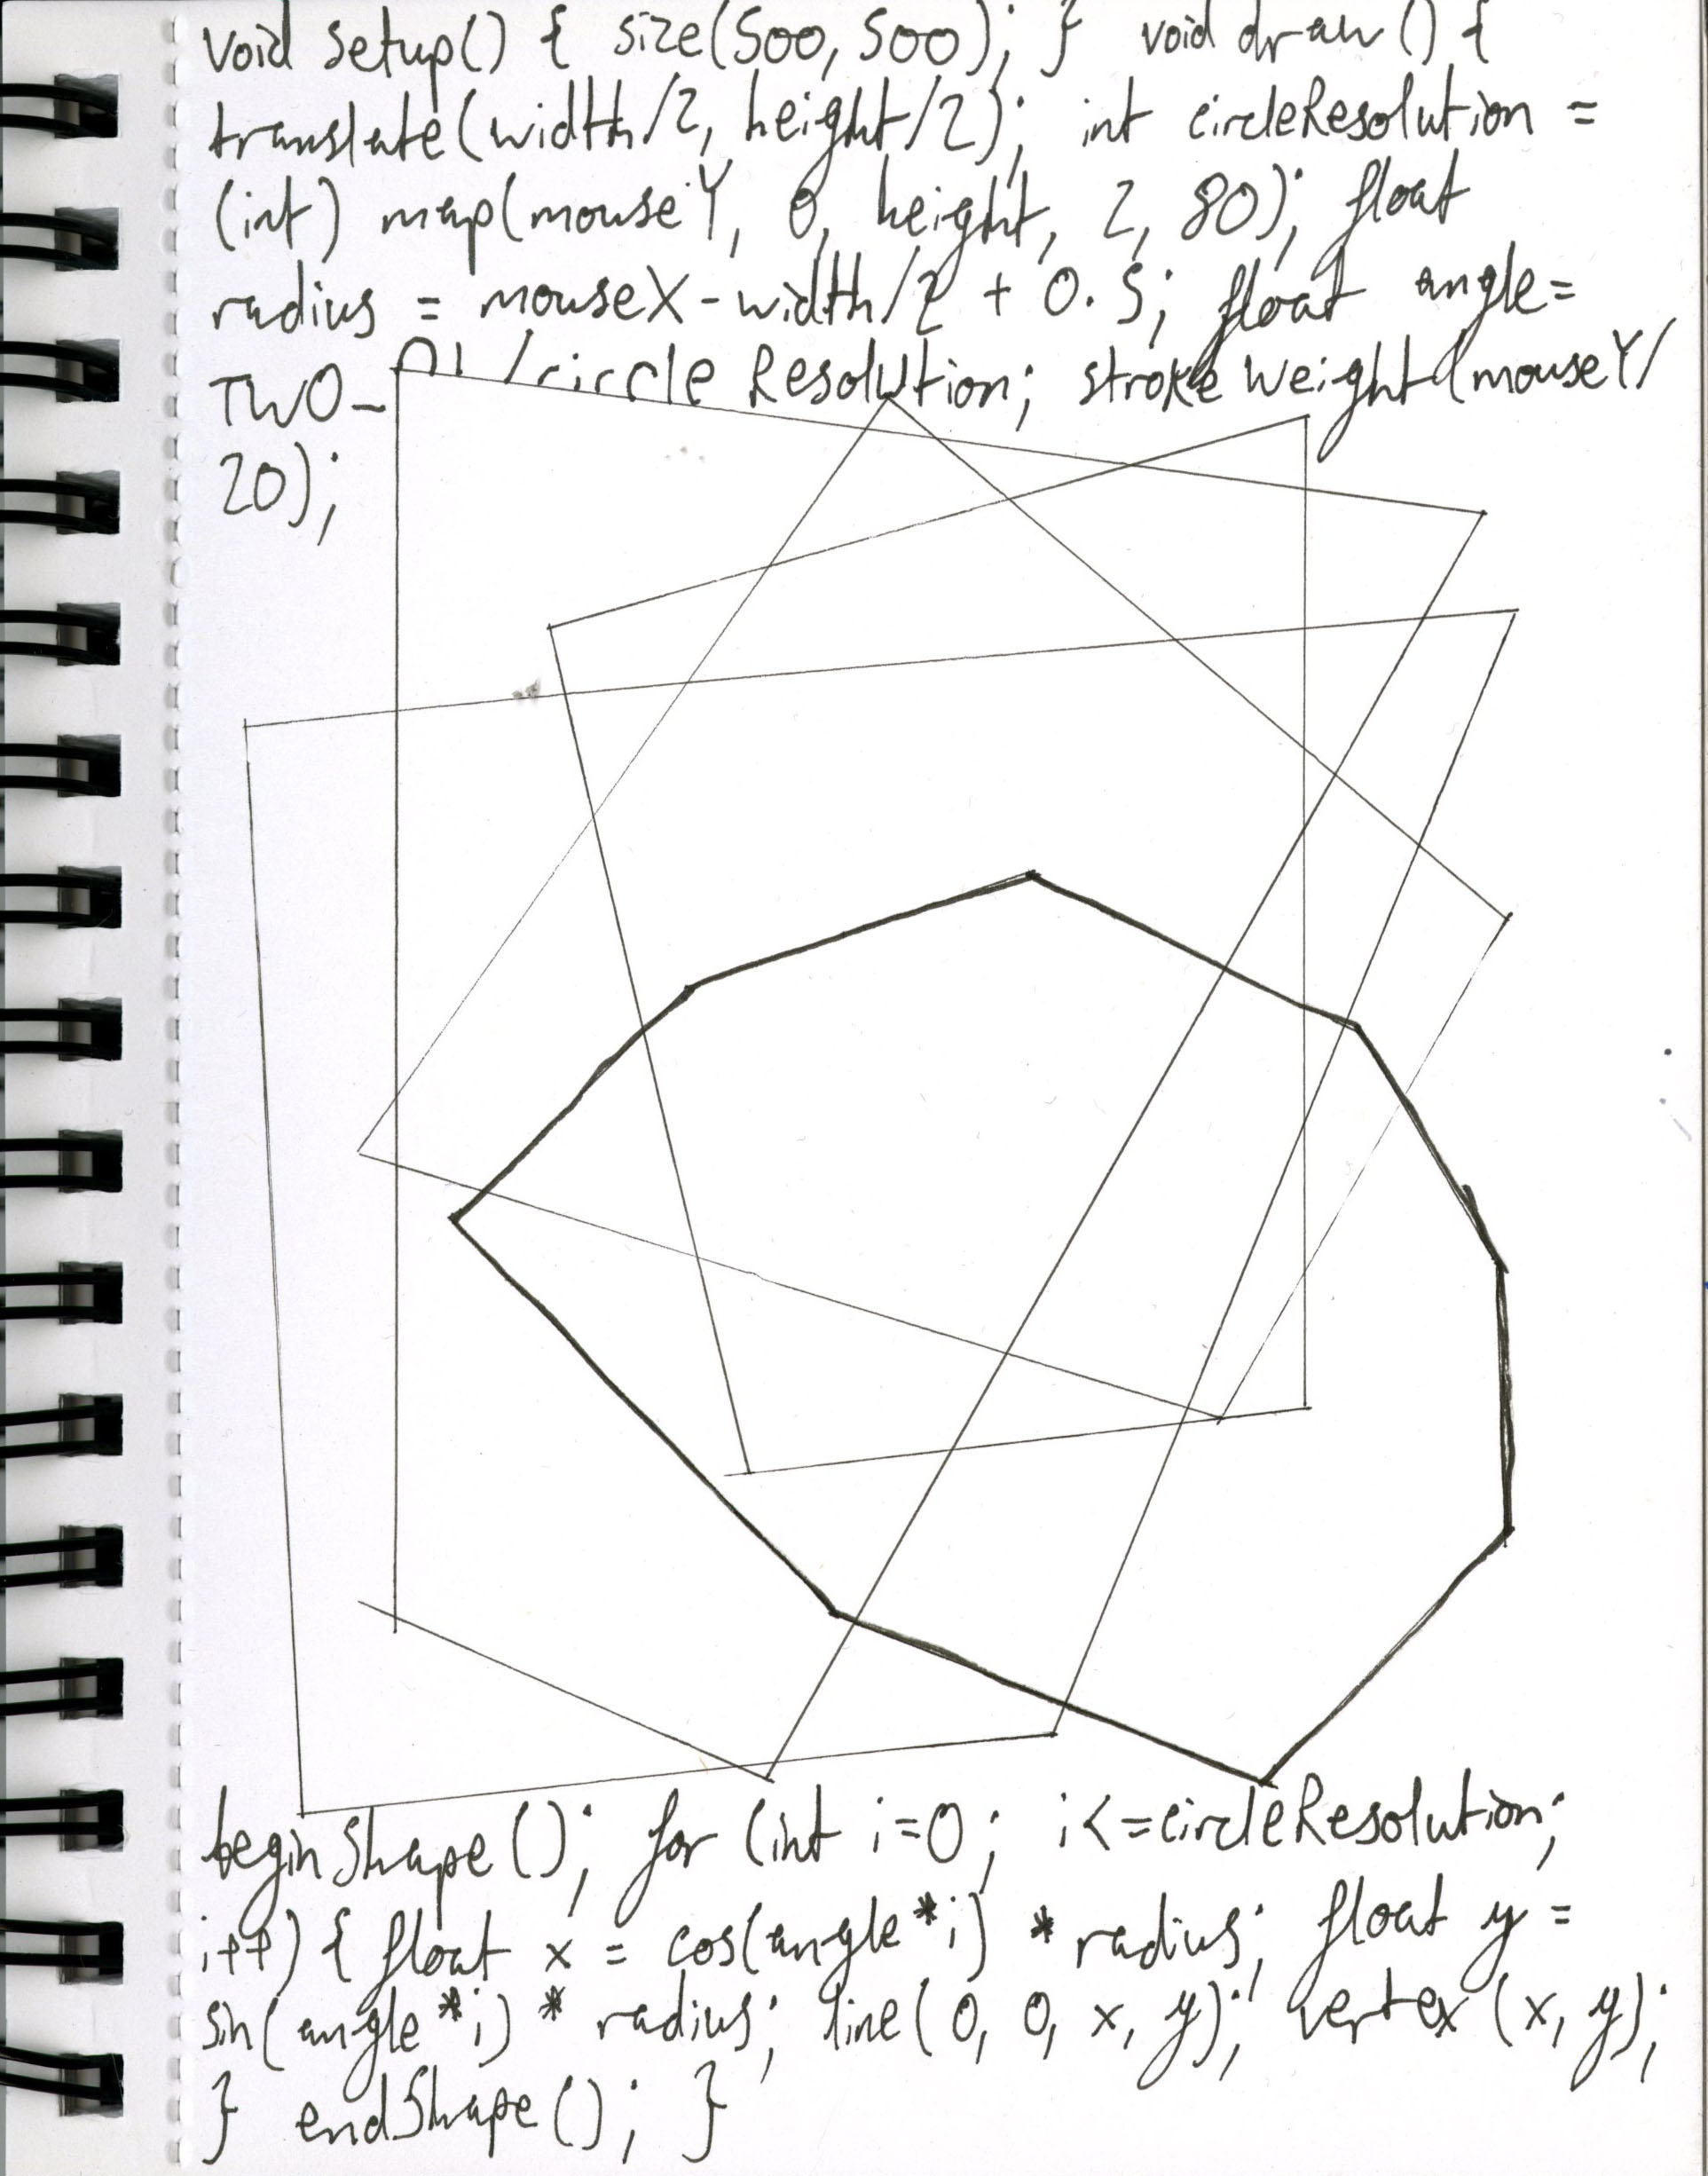 void setup() { size(500, 500); } void draw() {
translate(width/2, height/2); int circleResolution =
(int) map(mouseY, 0, height, 2, 80); float
radius = mouseX - width/2 + 0.5; float angle=
TWO_PI /circle Resolution; stroke Weight (mouseY/
20);
beginShape(); for (int i=0; i<=circleResolution;
i++) { float x = cos(angle*i) * radius; float y =
sin(angle*i) * radius; line(0, 0, x, y); vertex (x, y);
} endShape(); }